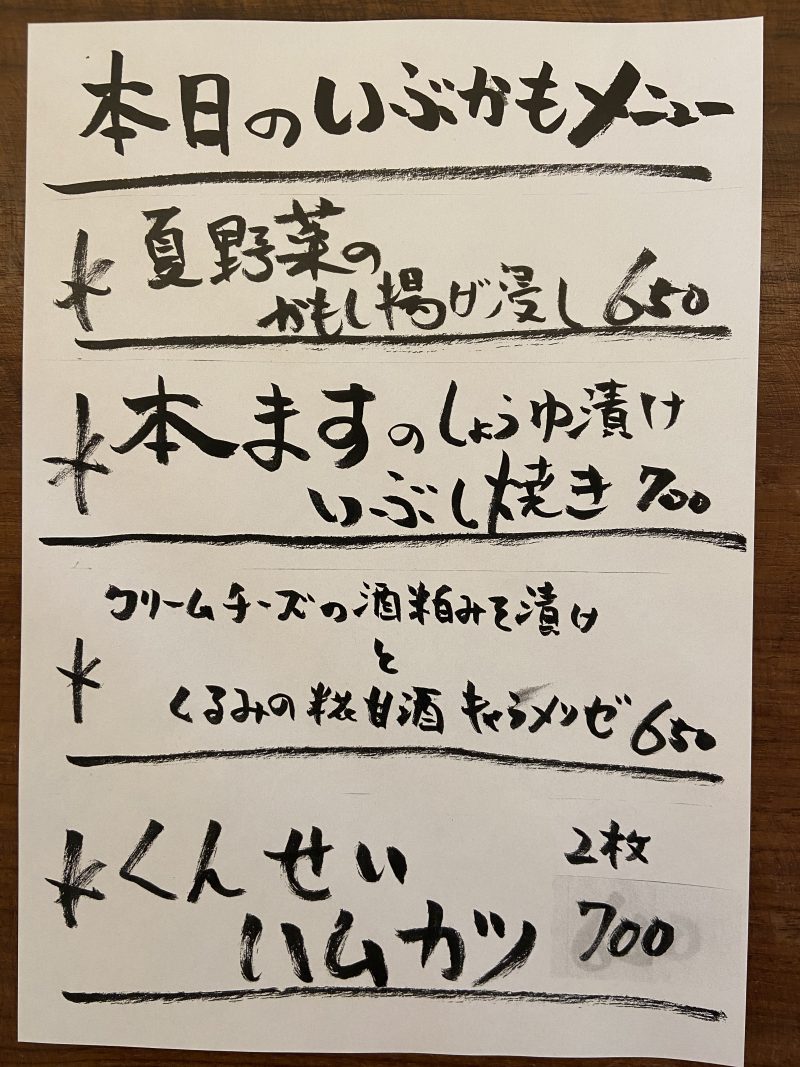 本日のいぶかもメニュー
夏野菜の
かもし揚げ浸し 650
本ますのしょうゆ漬け
いぶし焼き 700
クリームチーズの酒粕みそ漬け
と
くるみの糀甘酒キャラメリゼ 650
くんせい 2枚
ハムカツ 700